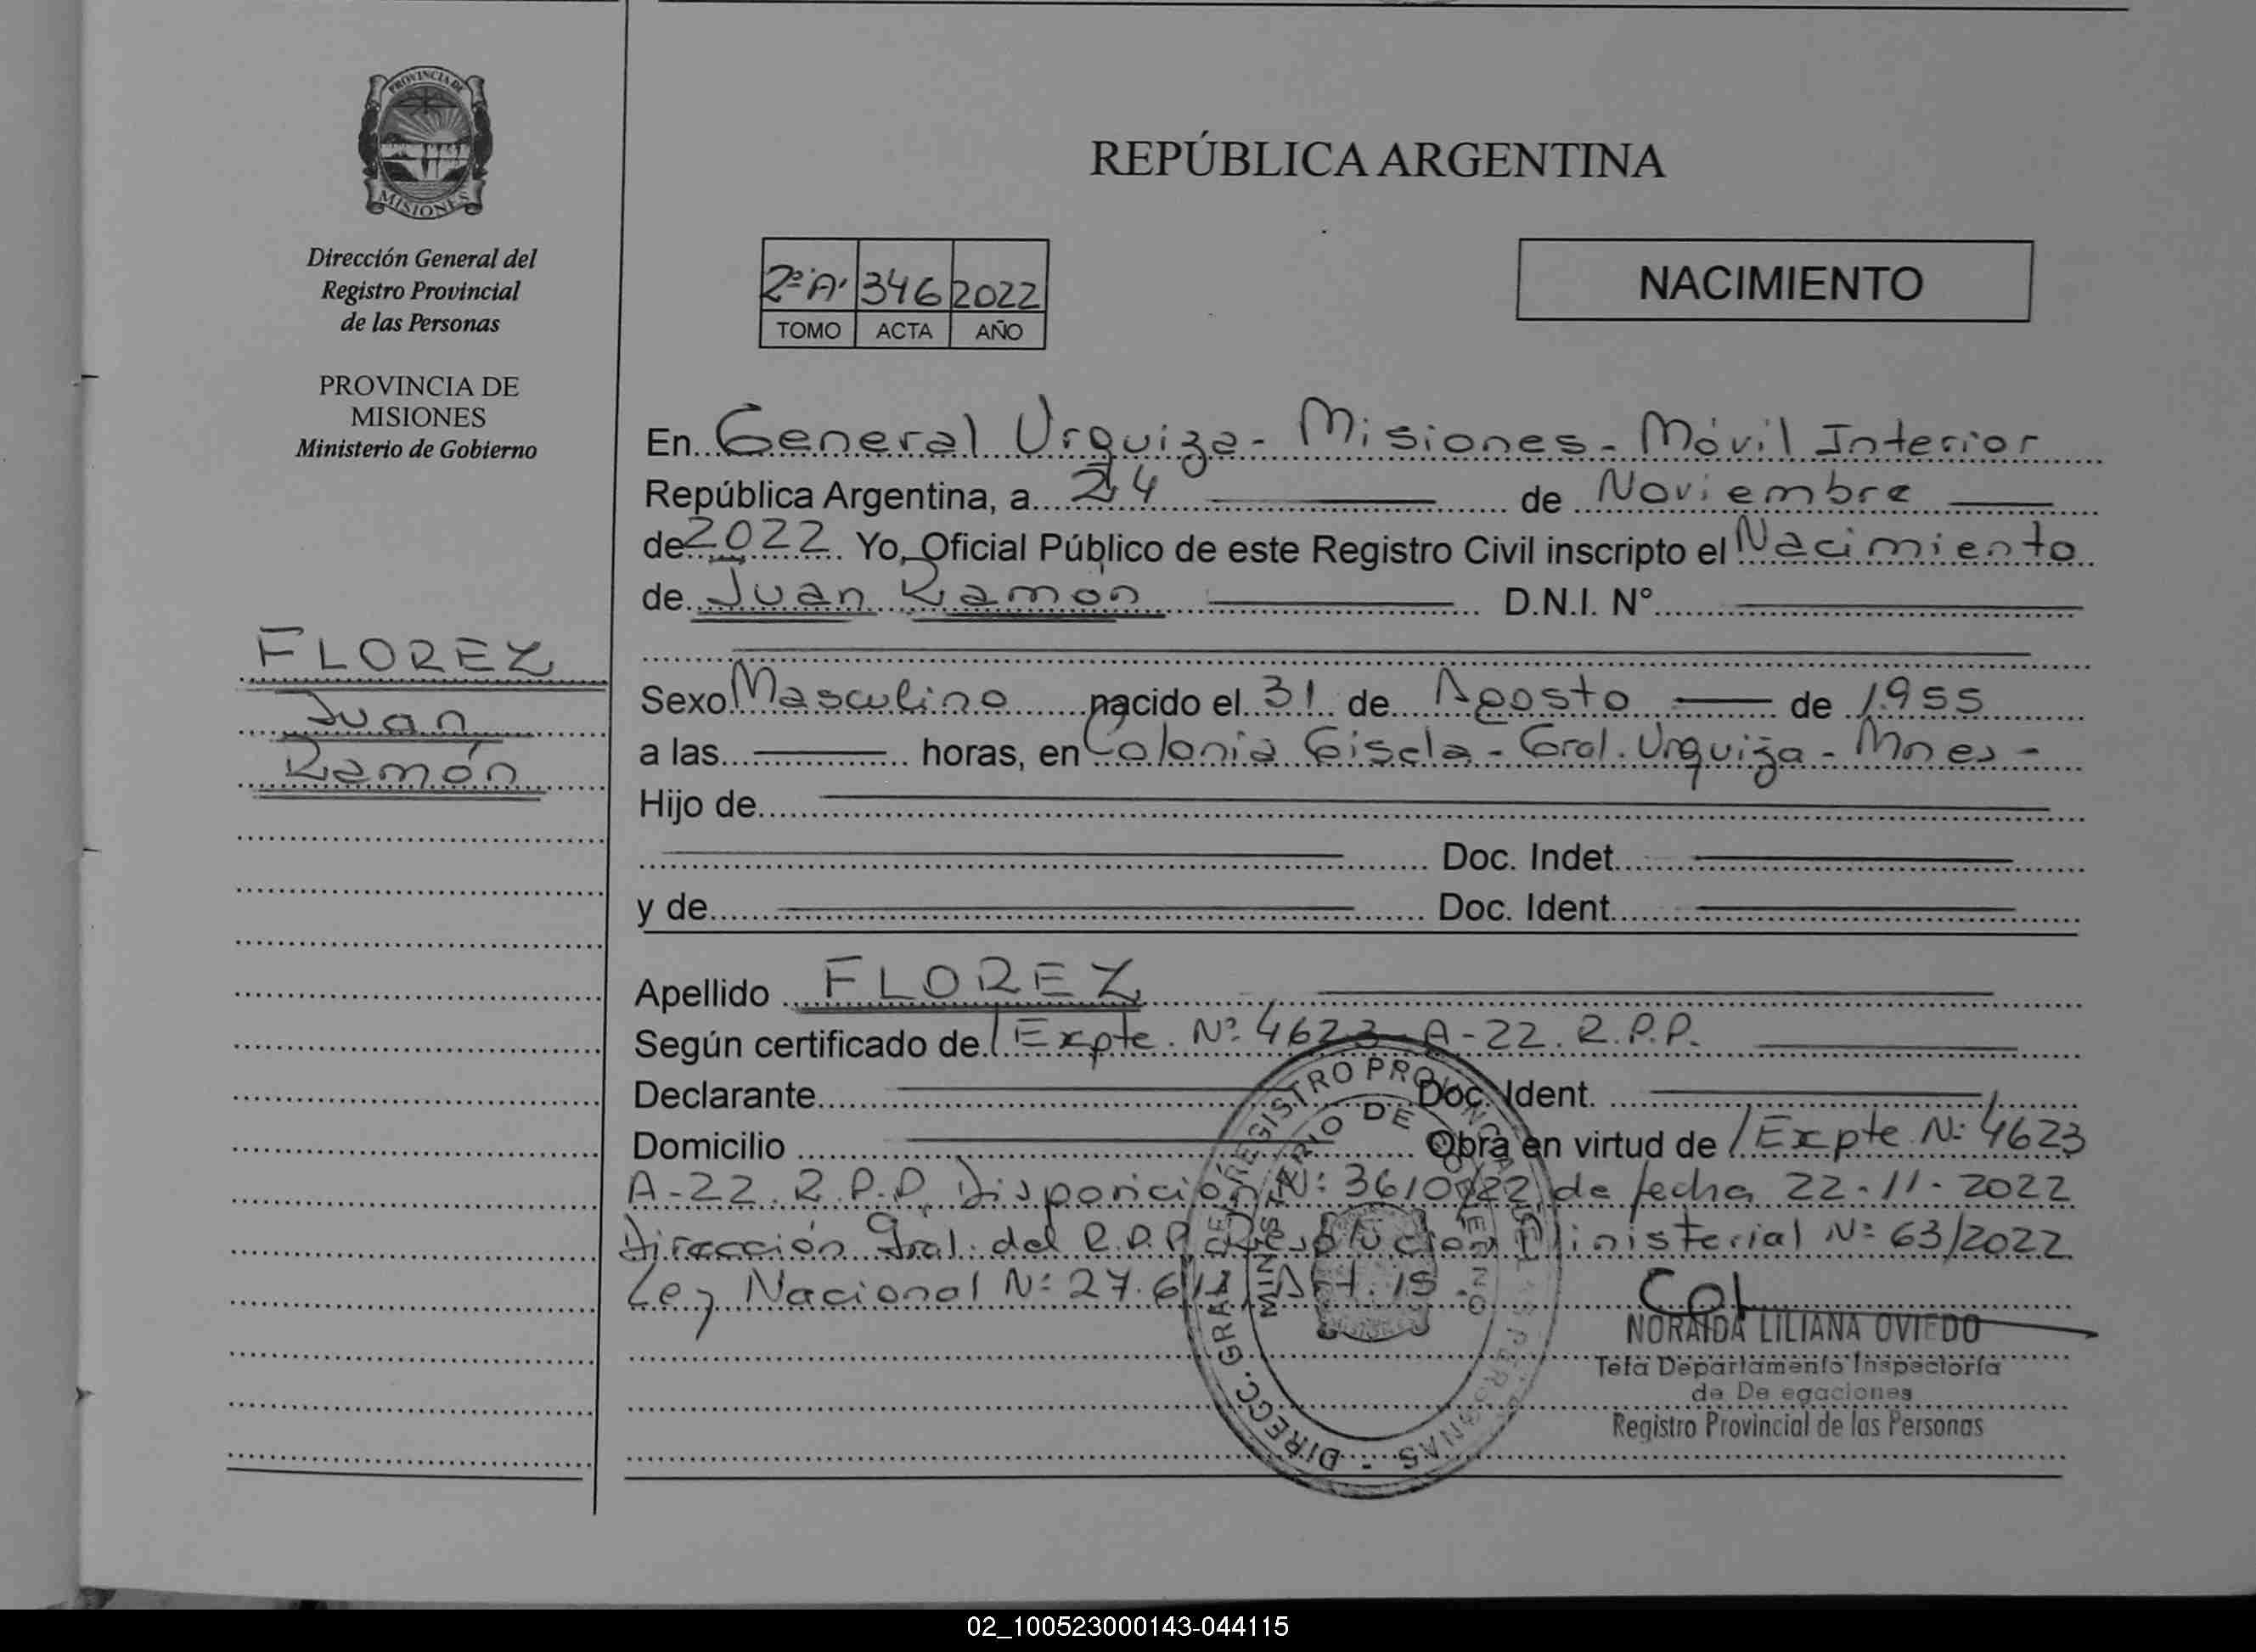 PROVINCIA DE
MISIONES
Dirección General del
Registro Provincial
de las Personas
PROVINCIA DE
MISIONES
Ministerio de Gobierno
FLOREZ
Juan
Ramón
REPÚBLICA ARGENTINA
2º"A" 346 2022
TOMO ACTA AÑO
NACIMIENTO
En General Urquiza - Misiones - Móvil Interior
República Argentina, a 24 de Noviembre
de 2022. Yo, Oficial Público de este Registro Civil inscripto el Nacimiento
de Juan Ramón D.N.I. N°
Sexo Masculino nacido el 31 de Agosto de 1955
a las horas, en Colonia Gisela - Gral. Urquiza - Mnes -
Hijo de
Doc. Indet.
y de Doc. Ident.
Apellido FLOREZ
Según certificado de Expte. Nº 4623-A-22. R.P.P.
Declarante Doc. Ident.
Domicilio Obra en virtud de Expte Nº 4623
A-22. R.P.P. Disposición Nº 3610/22 de fecha 22-11-2022
Dirección Gral. del R.P.P. Resolución Ministerial Nº 63/2022
Ley Nacional Nº 27.611 Art. 15.
DIRECC. GRAL. DEL REGISTRO PROVINCIAL DE LAS PERSONAS
MINISTERIO DE GOBIERNO
NORAIDA LILIANA OVIEDO
Departamento Inspectoría
de De egaciones
Registro Provincial de las Personas
02_100523000143-044115